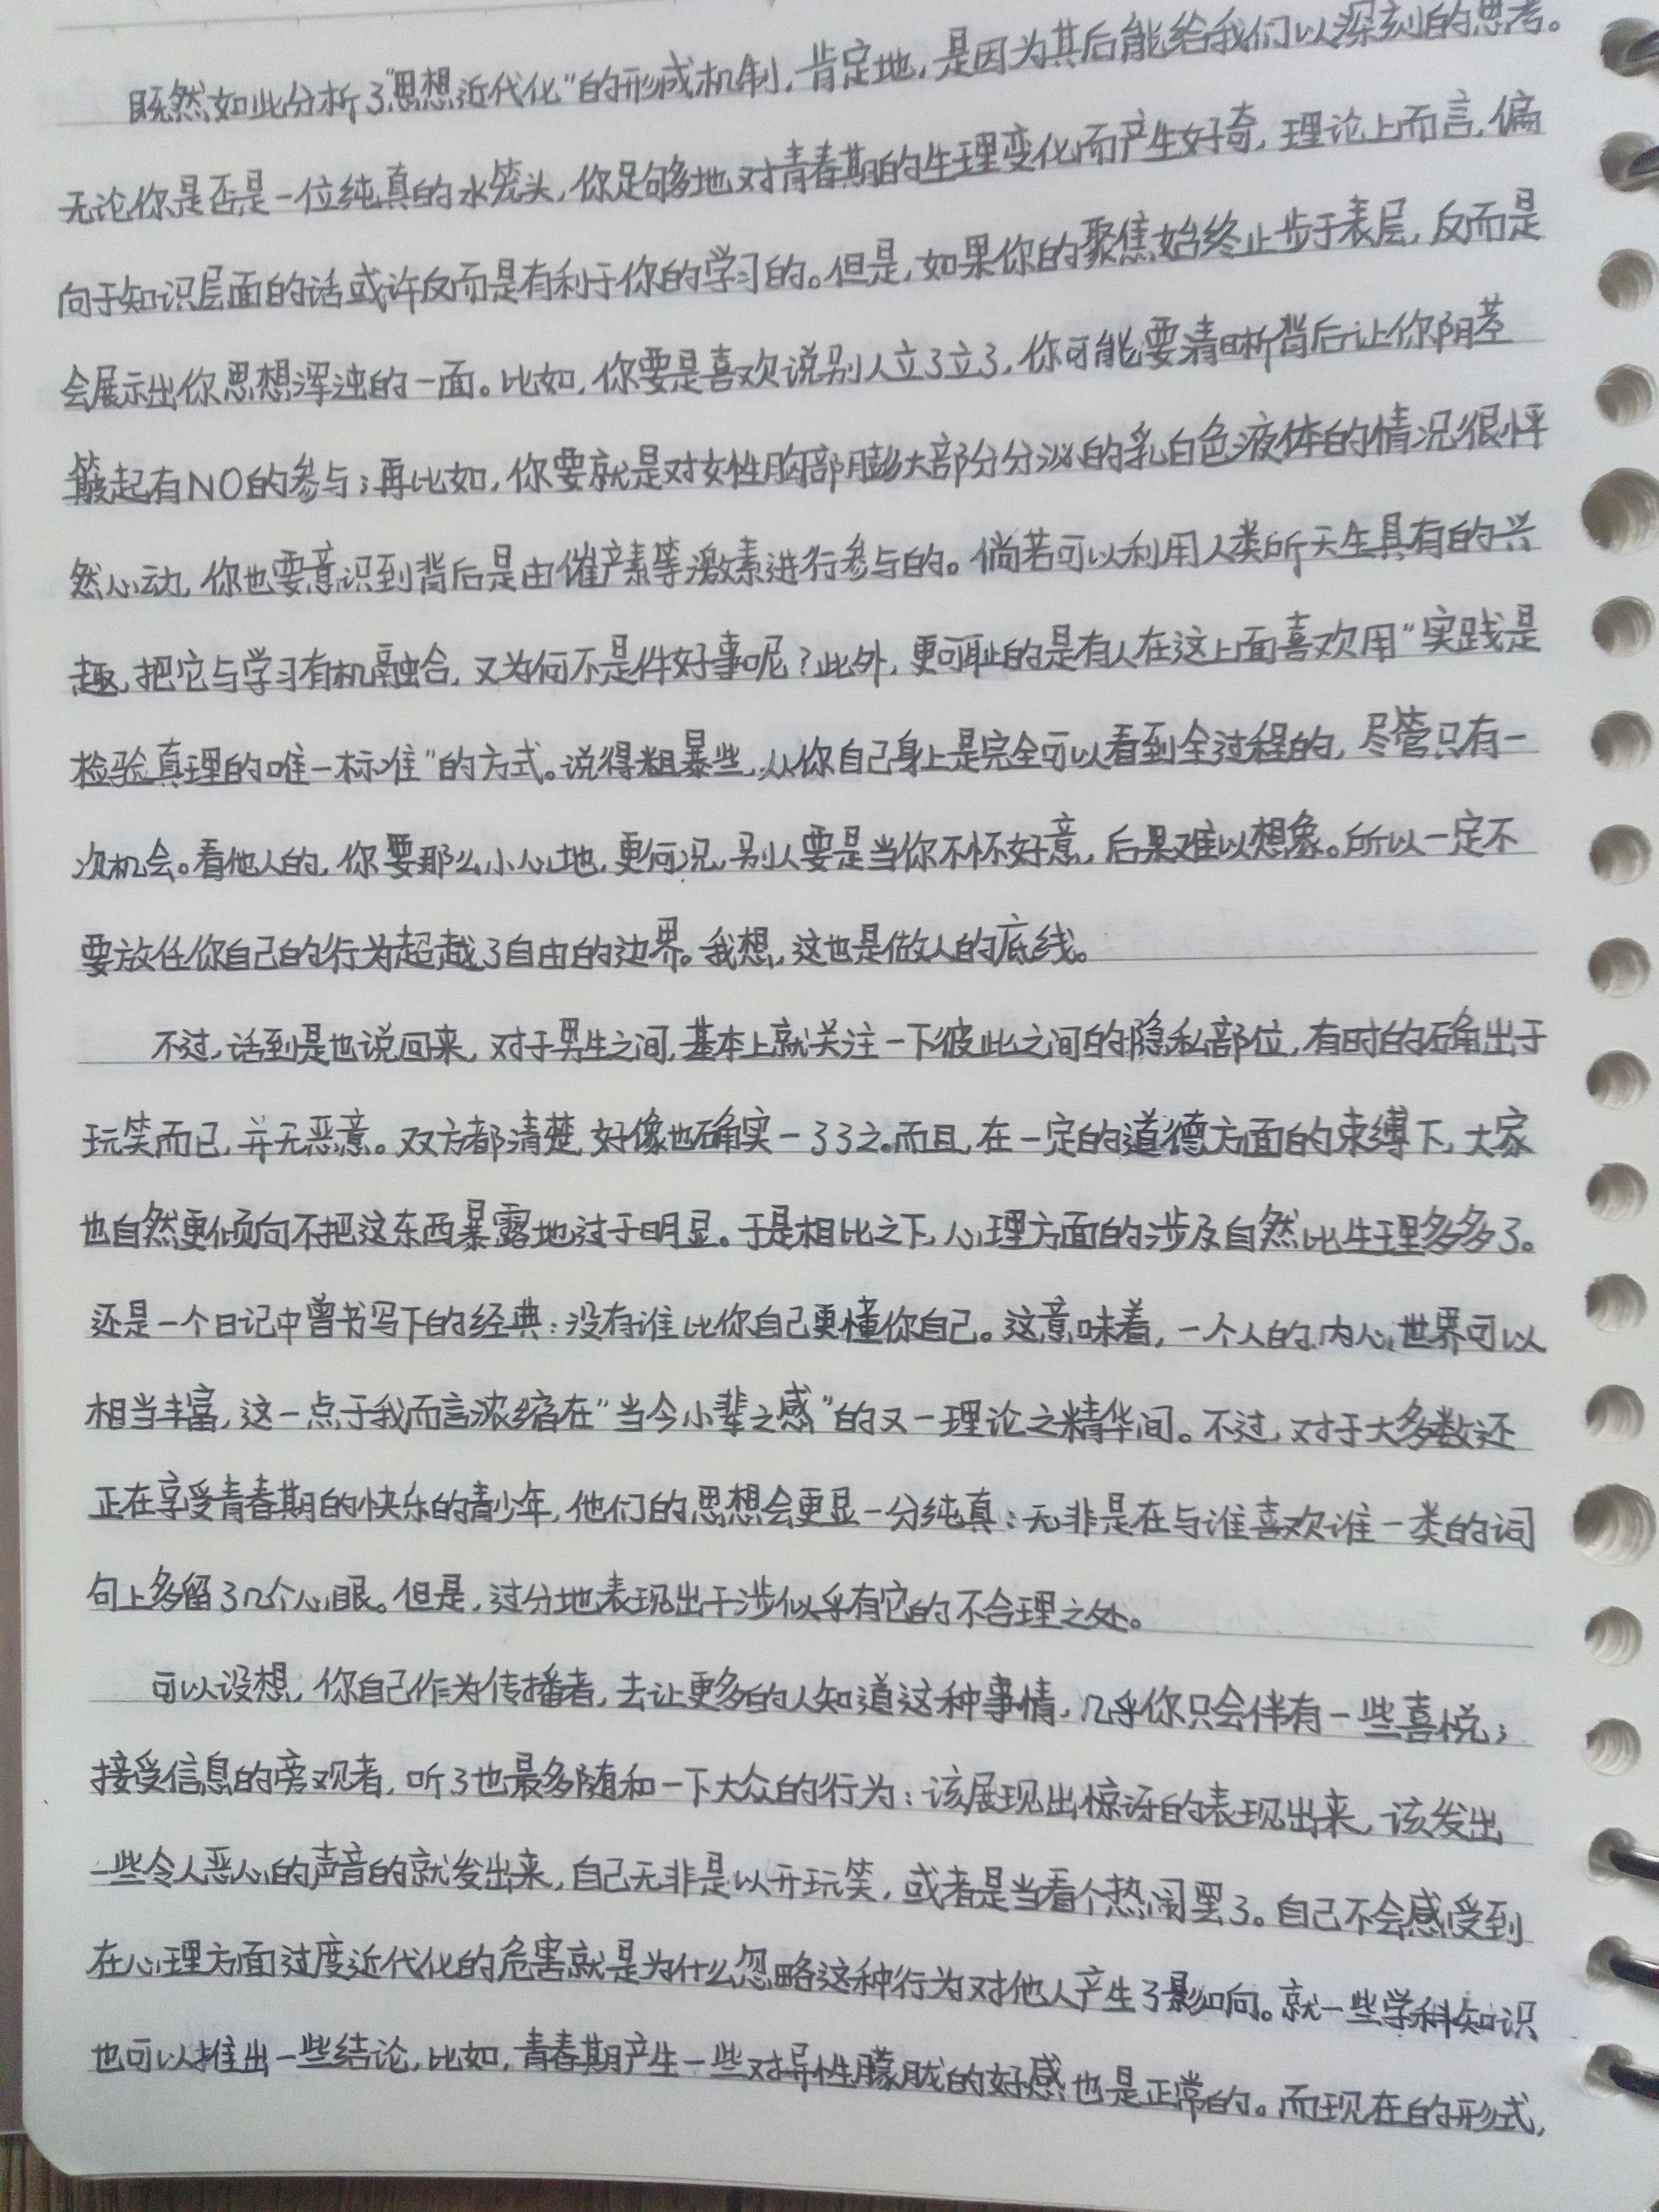 既然如此分析了“思想近代化”的形成机制，肯定地，是因为其后能给我们以深刻的思考。
无论你是否是一位纯真的水笼头，你足够地对青春期的生理变化而产生好奇，理论上而言，偏
向于知识层面的话或许反而是有利于你的学习的。但是，如果你的聚焦始终止步于表层，反而是
会展示出你思想浑浊的一面。比如，你要是喜欢说别人立了立了，你可能要清晰背后让你阴茎
起有NO的参与；再比如，你要就是对女性胸部膨大部分分泌的乳白色液体的情况很怦
然心动，你也要意识到背后是由催产素等激素进行参与的。倘若可以利用人类所天生具有的兴
趣，把它与学习有机融合，又为何不是件好事呢？此外，更可耻的是有人在这上面喜欢用“实践是
检验真理的唯一标准”的方式。说得粗暴些，从你自己身上是完全可以看到全过程的，尽管只有一
次机会。看他人的，你要那么小心地，更何况，别人要是当你不怀好意，后果难以想象。所以一定不
要放任你自己的行为超越了自由的边界。我想，这也是做人的底线。
不过，话到是也说回来，对于男生之间，基本上就关注一下彼此之间的隐私部位，有时的确出于
玩笑而已，并无恶意。双方都清楚，好像也确实一了了之。而且，在一定的道德方面的束缚下，大家
也自然更倾向不把这东西暴露地过于明显。于是相比之下，心理方面的涉及自然比生理多多了。
还是一个日记中曾书写下的经典：没有谁比你自己更懂你自己。这意味着，一个人的内心世界可以
相当丰富，这一点于我而言浓缩在“当今小辈之感”的又一理论之精华间。不过，对于大多数还
正在享受青春期的快乐的青少年，他们的思想会更显一分纯真：无非是在与谁喜欢谁一类的词
句上多留了几个心眼。但是，过分地表现出干涉似乎有它的不合理之处。
可以设想，你自己作为传播者，去让更多的人知道这种事情，几乎你只会伴有一些喜悦；
接受信息的旁观者，听了也最多随和一下大众的行为：该展现出惊讶的表现出来，该发出
一些令人恶心的声音的就发出来，自己无非是以开玩笑，或者是当看个热闹罢了。自己不会感受到
在心理方面过度近代化的危害就是为什么忽略这种行为对他人产生了影响。就一些学科知识
也可以推出一些结论，比如，青春期产生一些对异性朦胧的好感也是正常的。而现在的形式，